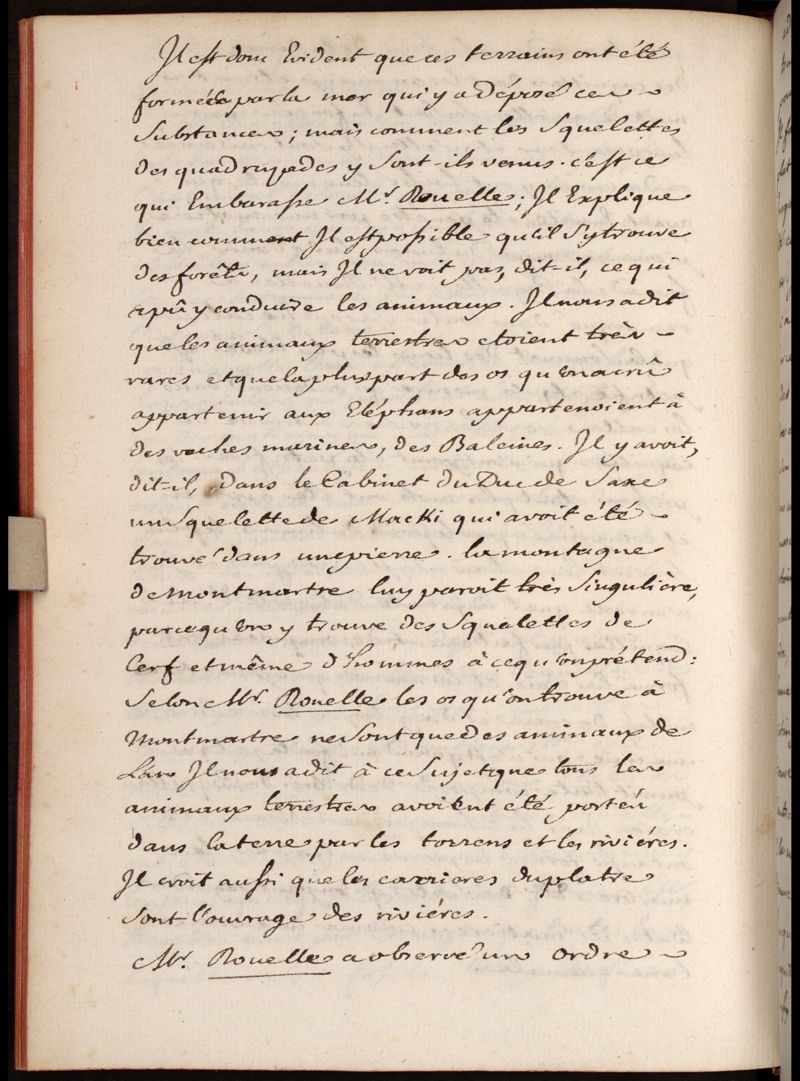 Il est donc Evident que ces terrains ont été
formés par la mer qui y a Déposé ces
Substances ; mais comment les Squelettes
des quadrupedes y Sont-ils venus. c'est ce
qui Embarasse Mr. Rouelle ; Il Explique
bien comment Il est possible qu'il S'y trouve
des forêts, mais Il ne voit pas, dit-il, ce qui
a pû y conduire les animaux. Il nous a dit
que les animaux terrestres etoient très
rares et que la plus part des os qu'on a crû
appartenir aux Eléphans appartenoient à
des vaches marines, des Baleines. Il y avoit,
dit-il, dans le Cabinet du Duc de Saxe
un Squelette de Macki qui avoit été
trouvé dans une pierre. la montagne
de Montmartre luy paroit très Singulière,
parce qu'on y trouve des Squelettes de
Cerf et même d'hommes à ce qu'on prétend :
Selon Mr. Rouelle les os qu'on trouve à
Montmartre ne Sont que des animaux de
Il nous a dit à ce Sujet que tous les
animaux terrestres avoient été portés
dans la terre par les torrens et les riviéres.
Il croit aussi que les carrieres du platre
Sont l'ouvrage des riviéres.
Mr. Rouelle a observé un ordre